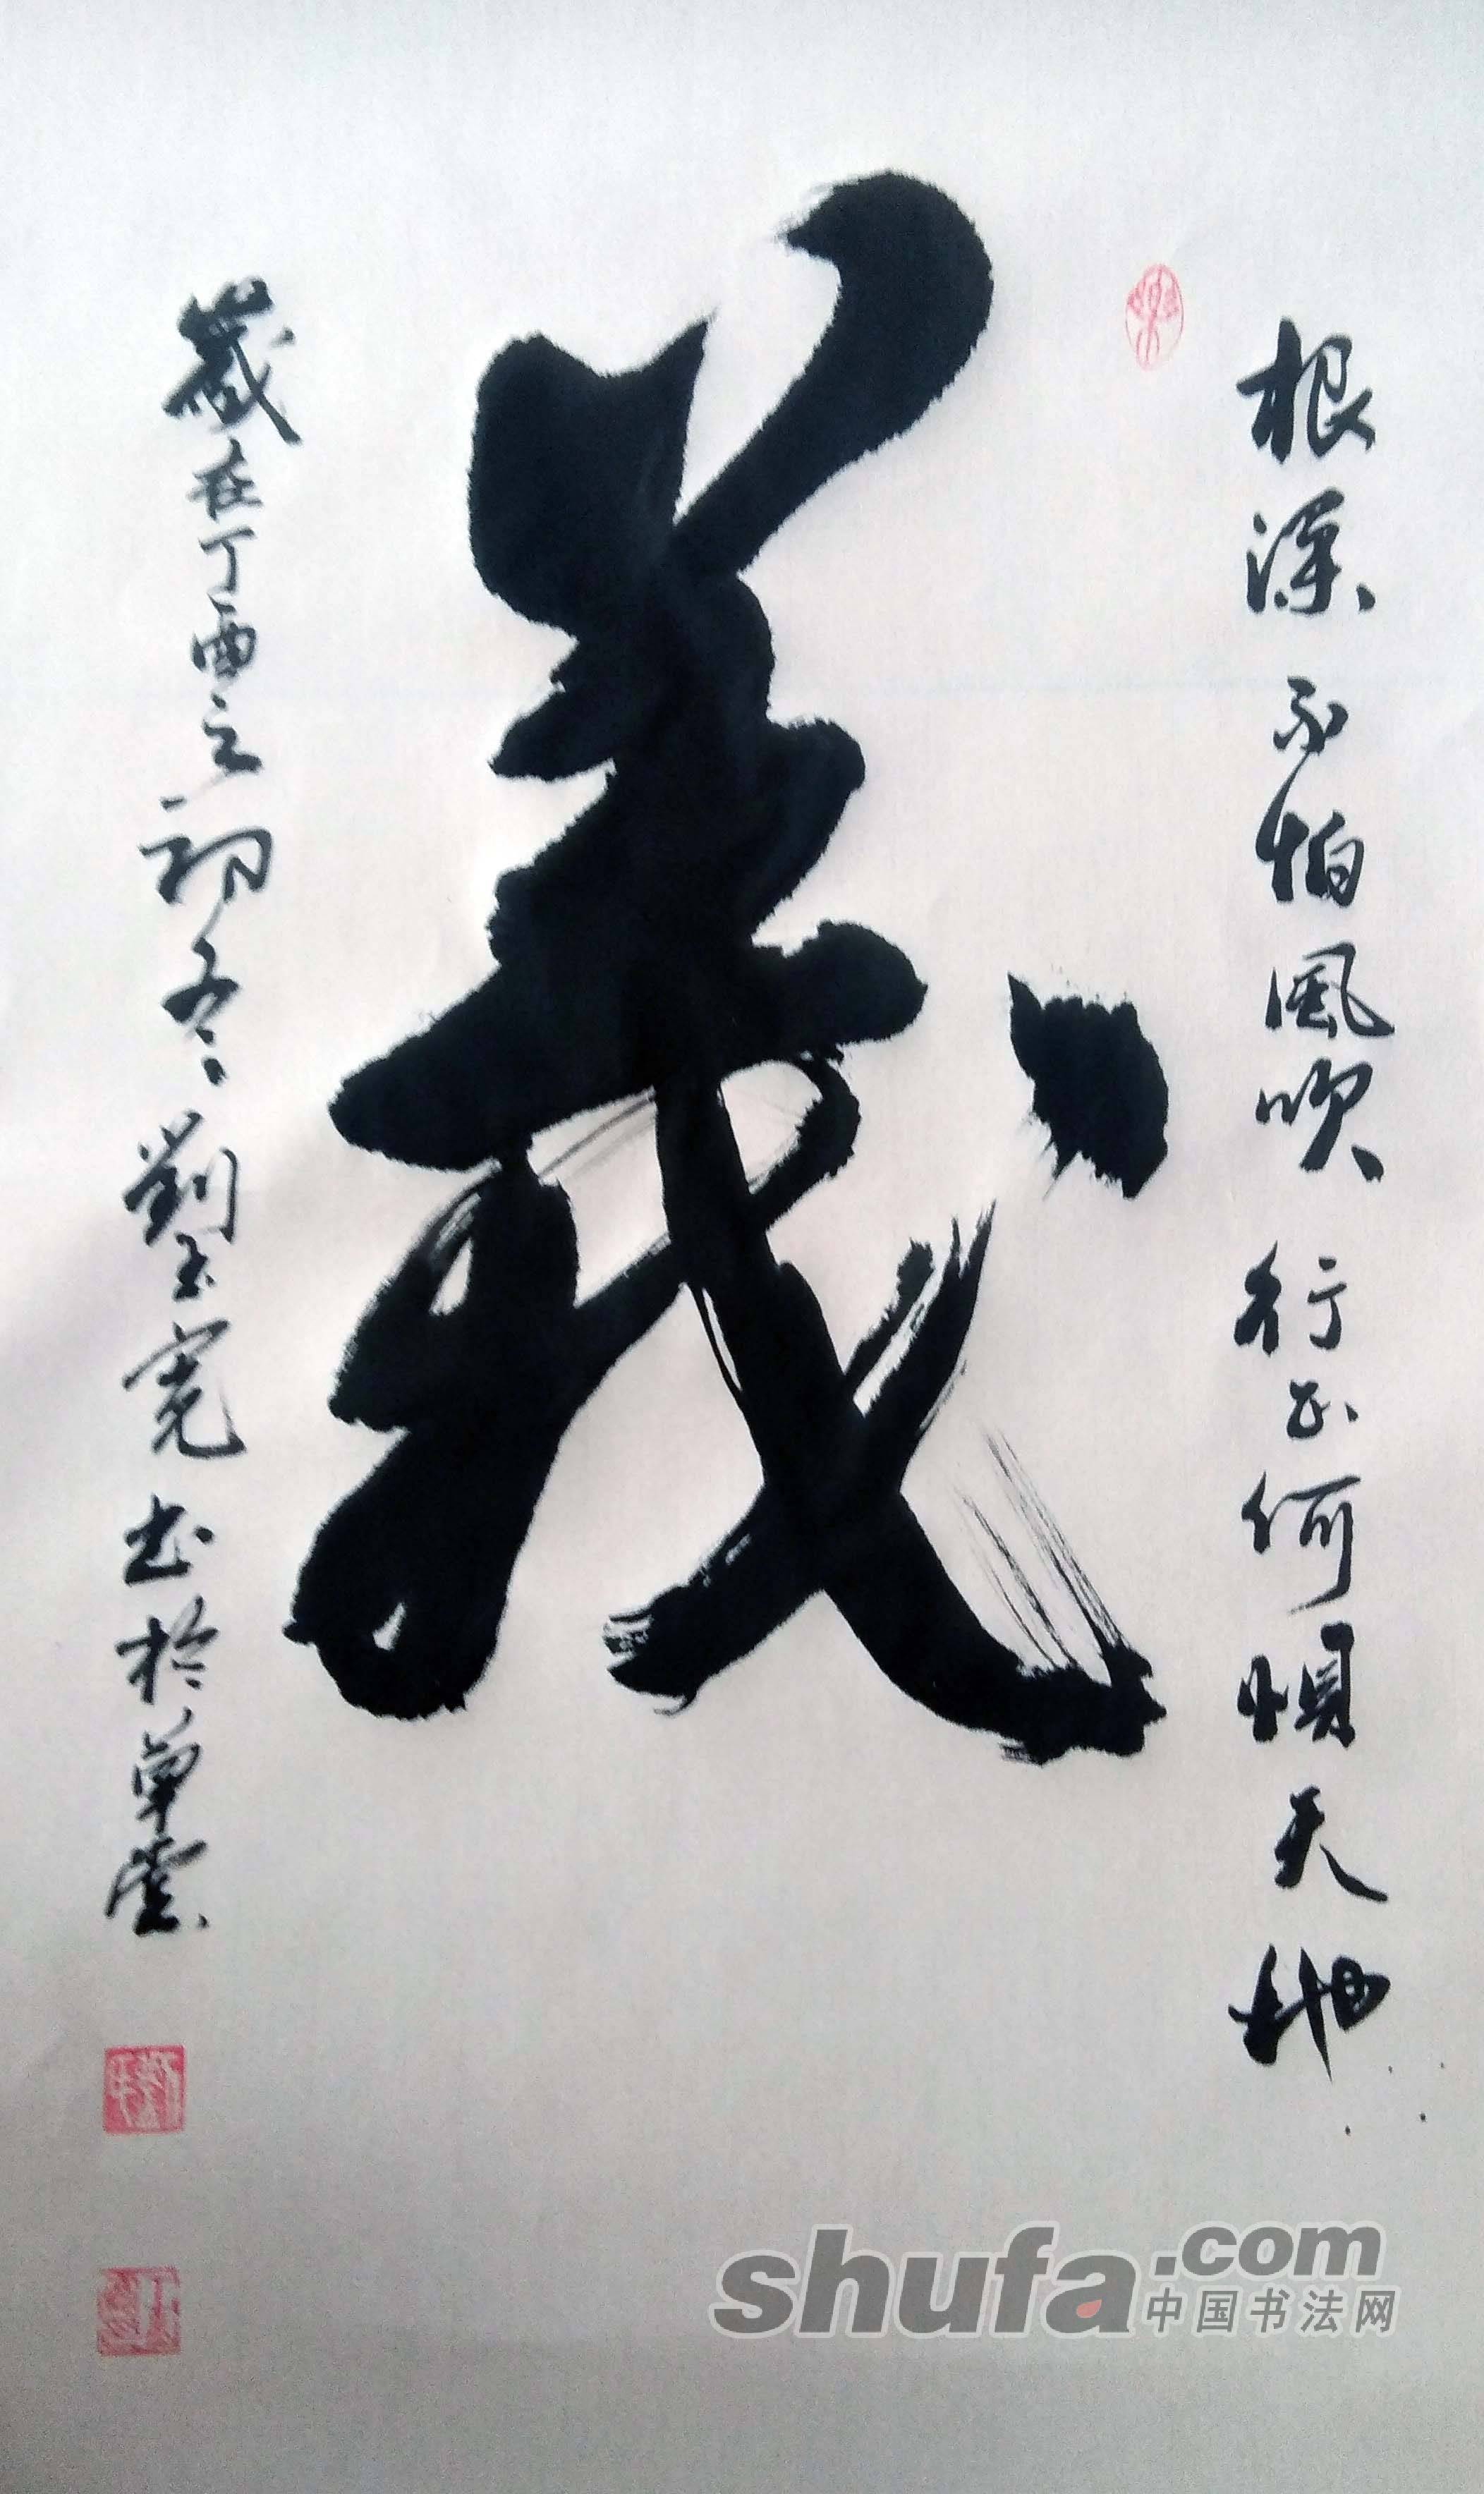 根深不怕風吹行正何惧天地
義
歲在丁酉之初冬劉玉亮书於草堂
shufa.com
中国书法网